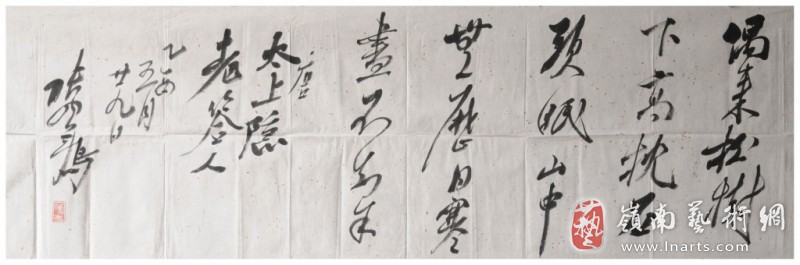 偶來松樹
下高枕石
頭眠山中
無歷日寒
盡不知年
唐
太上隱
者答人
乙酉
五月
廿九日
嶺南藝術網
www.lnarts.com